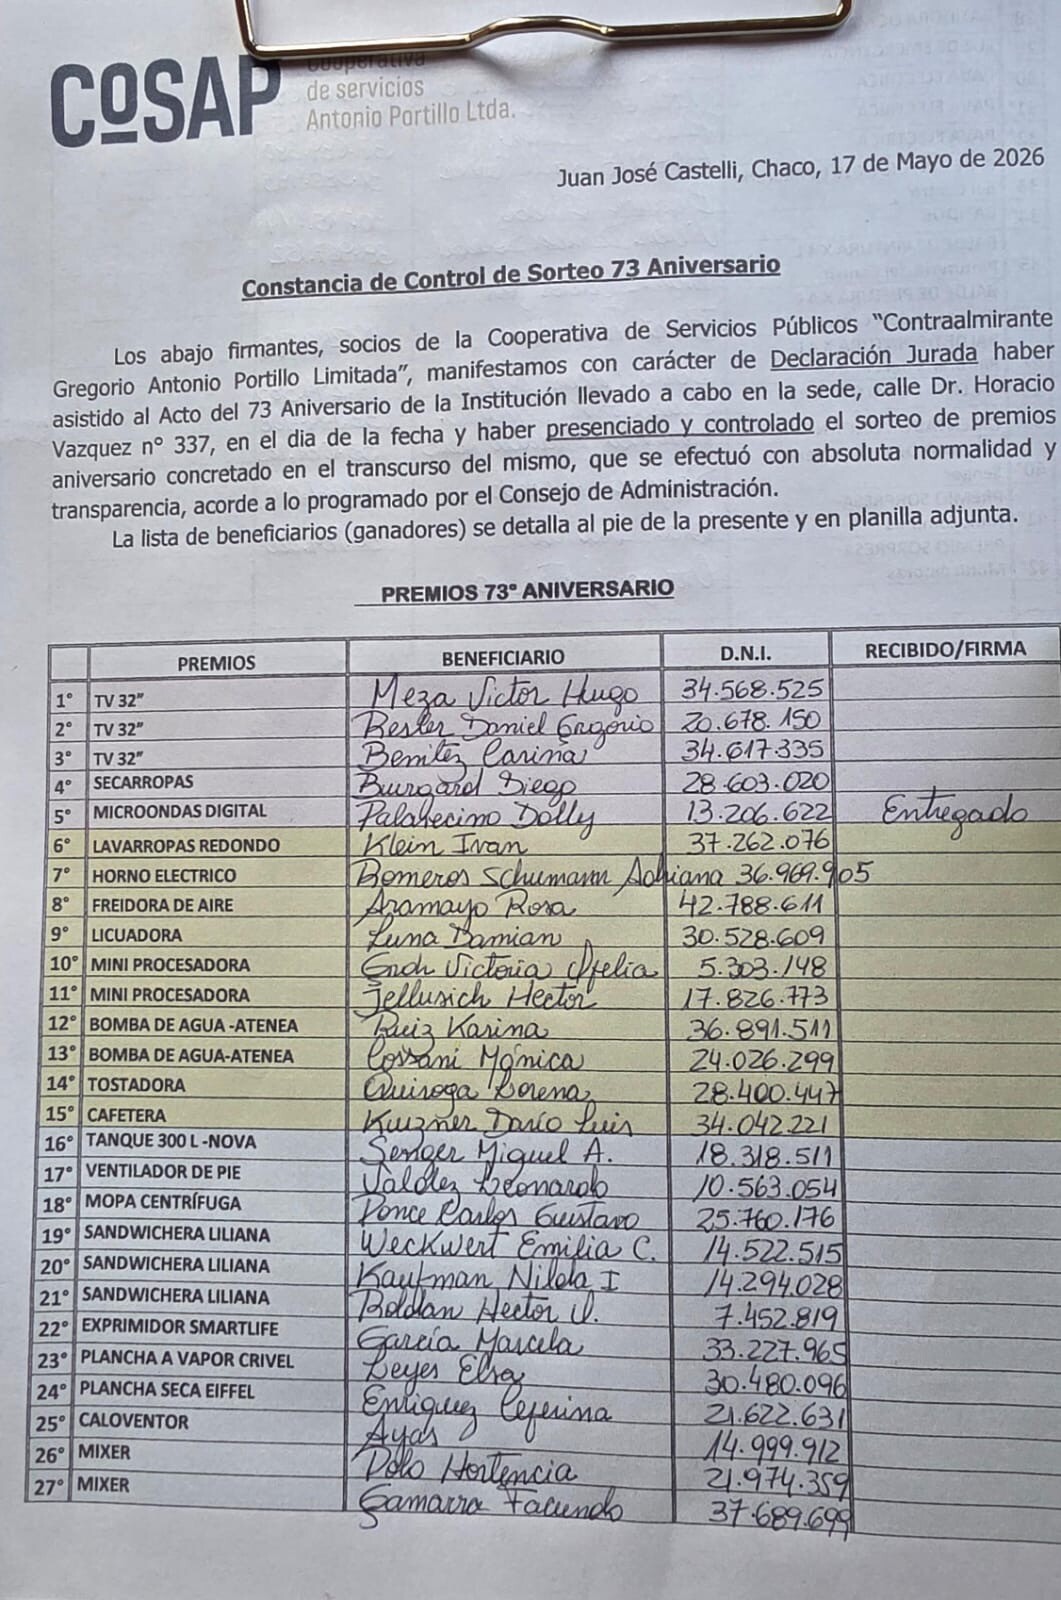 COSAP
Cooperativa
de servicios
Antonio Portillo Ltda.
Juan José Castelli, Chaco, 17 de Mayo de 2026
Constancia de Control de Sorteo 73 Aniversario
Los abajo firmantes, socios de la Cooperativa de Servicios Públicos “Contraalmirante
Gregorio Antonio Portillo Limitada”, manifestamos con carácter de Declaración Jurada haber
asistido al Acto del 73 Aniversario de la Institución llevado a cabo en la sede, calle Dr. Horacio
Vazquez n° 337, en el dia de la fecha y haber presenciado y controlado el sorteo de premios
aniversario concretado en el transcurso del mismo, que se efectuó con absoluta normalidad y
transparencia, acorde a lo programado por el Consejo de Administración.
La lista de beneficiarios (ganadores) se detalla al pie de la presente y en planilla adjunta.
PREMIOS 73° ANIVERSARIO
PREMIOS BENEFICIARIO D.N.I. RECIBIDO/FIRMA
1° TV 32” Meza Victor Hugo 34.568.525
2° TV 32” Bester Daniel Gregorio 20.678.150
3° TV 32” Benitez Carina 34.617.335
4° SECARROPAS Burgard Diego 28.603.020
5° MICROONDAS DIGITAL Palavecino Dolly 13.206.622 Entregado
6° LAVARROPAS REDONDO Klein Ivan 37.262.076
7° HORNO ELECTRICO Romeros Schumann Adriana 36.969.905
8° FREIDORA DE AIRE Aramayo Rosa 42.788.611
9° LICUADORA Luna Damian 30.528.609
10° MINI PROCESADORA Victoria Ofelia 5.303.148
11° MINI PROCESADORA Jellusich Hector 17.826.773
12° BOMBA DE AGUA -ATENEA Ruiz Karina 36.891.511
13° BOMBA DE AGUA-ATENEA Cossani Mónica 24.026.299
14° TOSTADORA Quiroga Lorena 28.400.447
15° CAFETERA Kuzner Darío Luis 34.042.221
16° TANQUE 300 L -NOVA Senger Miguel A. 18.318.511
17° VENTILADOR DE PIE Valdez Leonardo 10.563.054
18° MOPA CENTRÍFUGA Ponce Carlos Gustavo 25.760.176
19° SANDWICHERA LILIANA Weckwert Emilia C. 14.522.515
20° SANDWICHERA LILIANA Kaufman Nilda I 14.294.028
21° SANDWICHERA LILIANA Roldan Hector O. 7.452.819
22° EXPRIMIDOR SMARTLIFE García Marcela 33.227.965
23° PLANCHA A VAPOR CRIVEL Leyes Elsa 30.480.096
24° PLANCHA SECA EIFFEL Enriquez Ceferina 21.622.631
25° CALOVENTOR Ayas 14.999.912
26° MIXER Polo Hortencia 21.974.359
27° MIXER Gamarra Facundo 37.689.699